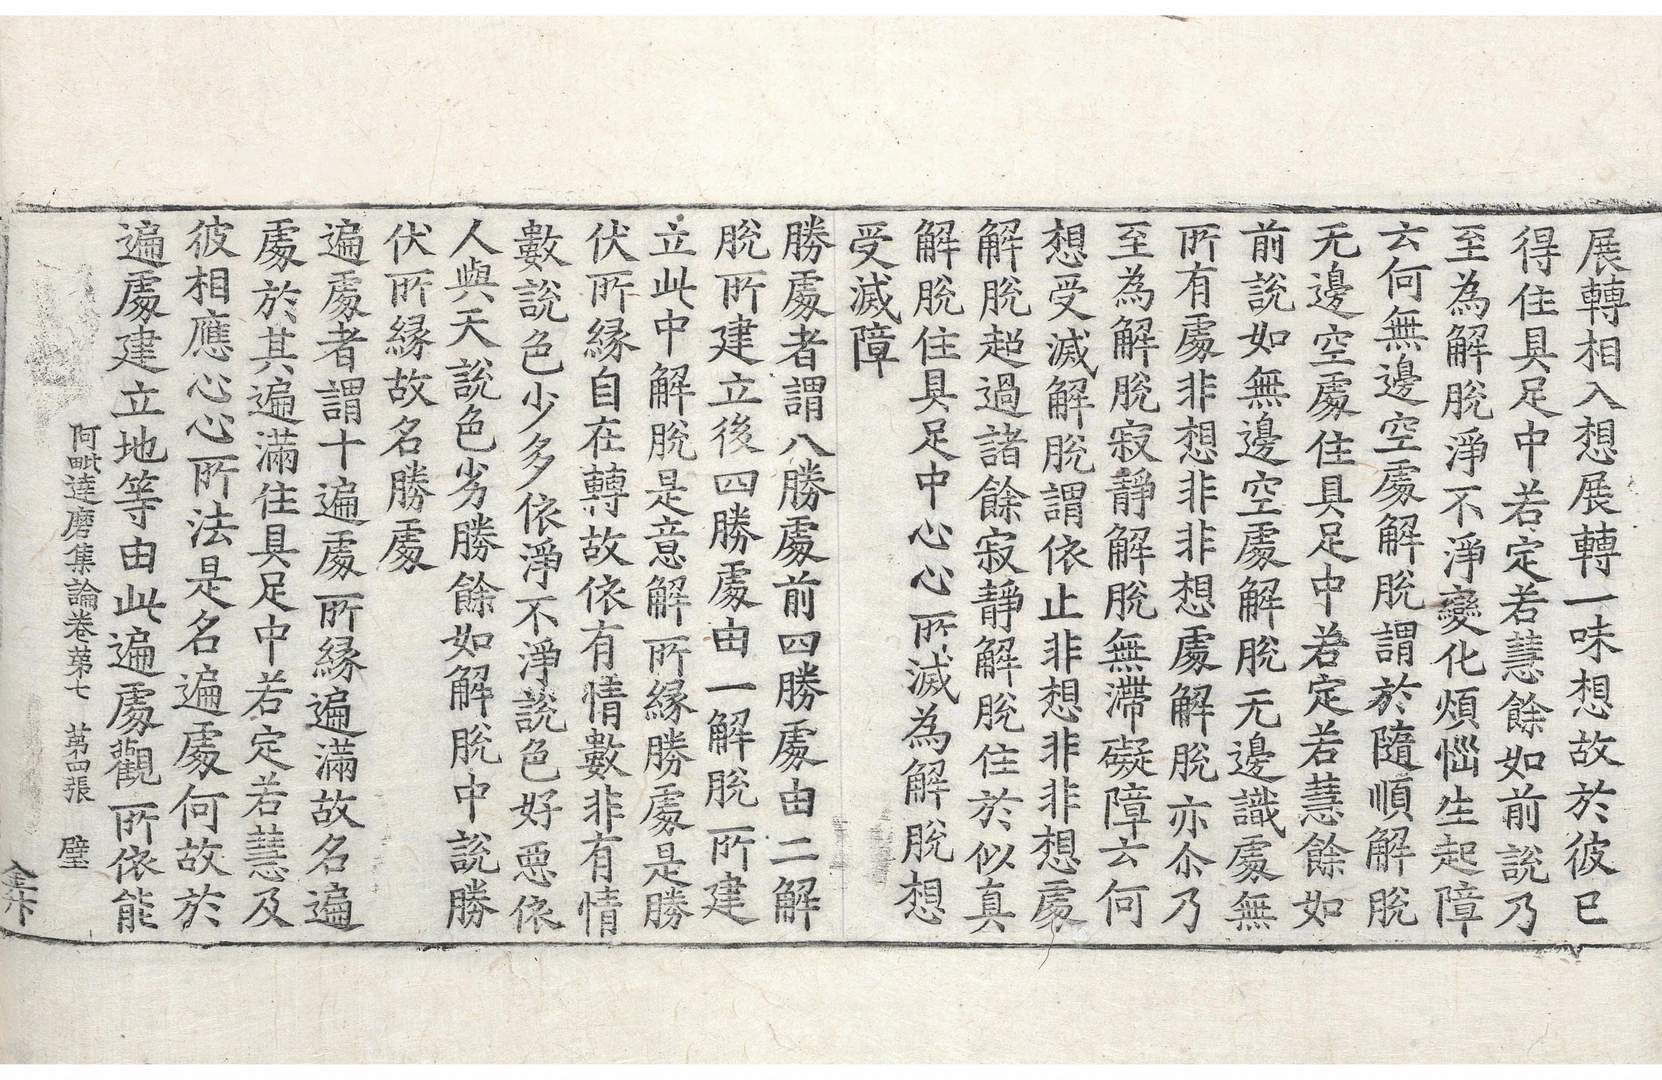 展轉相入想展轉一味想故於彼已
得住具足中若定若慧餘如前說乃
至為解脫淨不淨變化煩惱生起障
云何無邊空處解脫謂於隨順解脫
无邊空處住具足中若定若慧餘如
前說如無邊空處解脫无邊識處無
所有處非想非非想處解脫亦尒乃
至為解脫寂靜解脫無滯礙障云何
想受滅解脫謂依止非想非非想處
解脫超過諸餘寂靜解脫住於似真
解脫住具足中心心所滅為解脫想
受滅障
勝處者謂八勝處前四勝處由二解
脫所建立後四勝處由一解脫所建
立此中解脫是意解所緣勝處是勝
伏所緣自在轉故依有情數非有情
數說色少多依淨不淨說色好惡依
人與天說色劣勝餘如解脫中說勝
伏所緣故名勝處
遍處者謂十遍處所緣遍滿故名遍
處於其遍滿住具足中若定若慧及
彼相應心心所法是名遍處何故於
遍處建立地等由此遍處觀所依能
阿毗達磨集論卷第七 第四張 璧